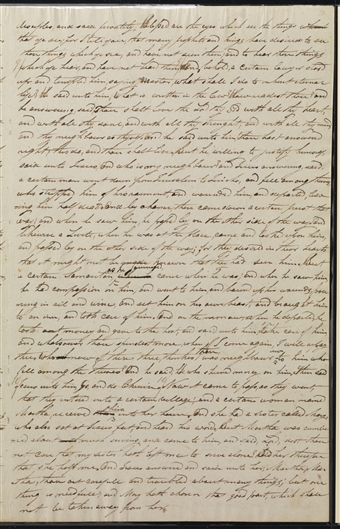 disciples and said privately, blessed are the eyes which see the things
that ye see for I tell you, that many prophets and kings have desired to see
those things which ye see, and have not seen them, and to hear those things
which ye hear, and have not heard them and behold, a certain lawyer stood
up and tempted him, saying Master, what shall I do to inherit eternal
life, he said unto him, what is written in the law how readest thou, and
he answering said, thou shalt love the Lord thy God with all thy heart,
and with all thy soul, and with all thy strength and with all thy mind,
and thy neighbour as thyself, and he said unto him, thou hast answered
right, this do, and thou shalt live, but he willing to justify himself
said unto Jesus, and who is my neighbour and Jesus answering said
a certain man went down from Jerusalem to Jericho, and fell among thieves
who stripped him of his raiment, and wounded him, and departed, lea
ving him half dead and by chance, there came down a certain priest that
way, and when he saw him, he passed by on the other side of the way and
likewise a Levite, when he was at the place, came and looked upon him,
and passed by on the other side of the way, for they desired in their hearts
that it might not be known that they had seen him, but
a certain Samaritan as he journeyed came where he was, and when he saw him,
he had compassion on him, and went to him, and bound up his wounds, pou
ring in oil and wine and set him on his own beast, and brought him
to an inn, and took care of him, and on the morrow, when he departed, he
took out money and gave to the host, and said unto him, take care of him
and whatsoever thou spendest more, when I come again, I will repay
thee who now of these three, thinkest thou, was neighbour unto him who
fell among the thieves and he said he who shewed mercy on him, then said
Jesus unto him, go and do likewise Now it came to pass, as they went,
that they entered into a certain village, and a certain woman named
Martha received him into her house, and she had a sister called Mary,
who also sat at Jesus feet, and heard his word, but Martha was cumbe
red about much serving, and came to him, and said, Lord, dost thou
not care that my sister hath left me to serve alone bid her therefore
that she help me, and Jesus answered and said unto her, Martha, Mar
tha, thou art careful and troubled about many things, but one
thing is needful, and Mary hath chosen that good part, which shall
not be taken away from her,